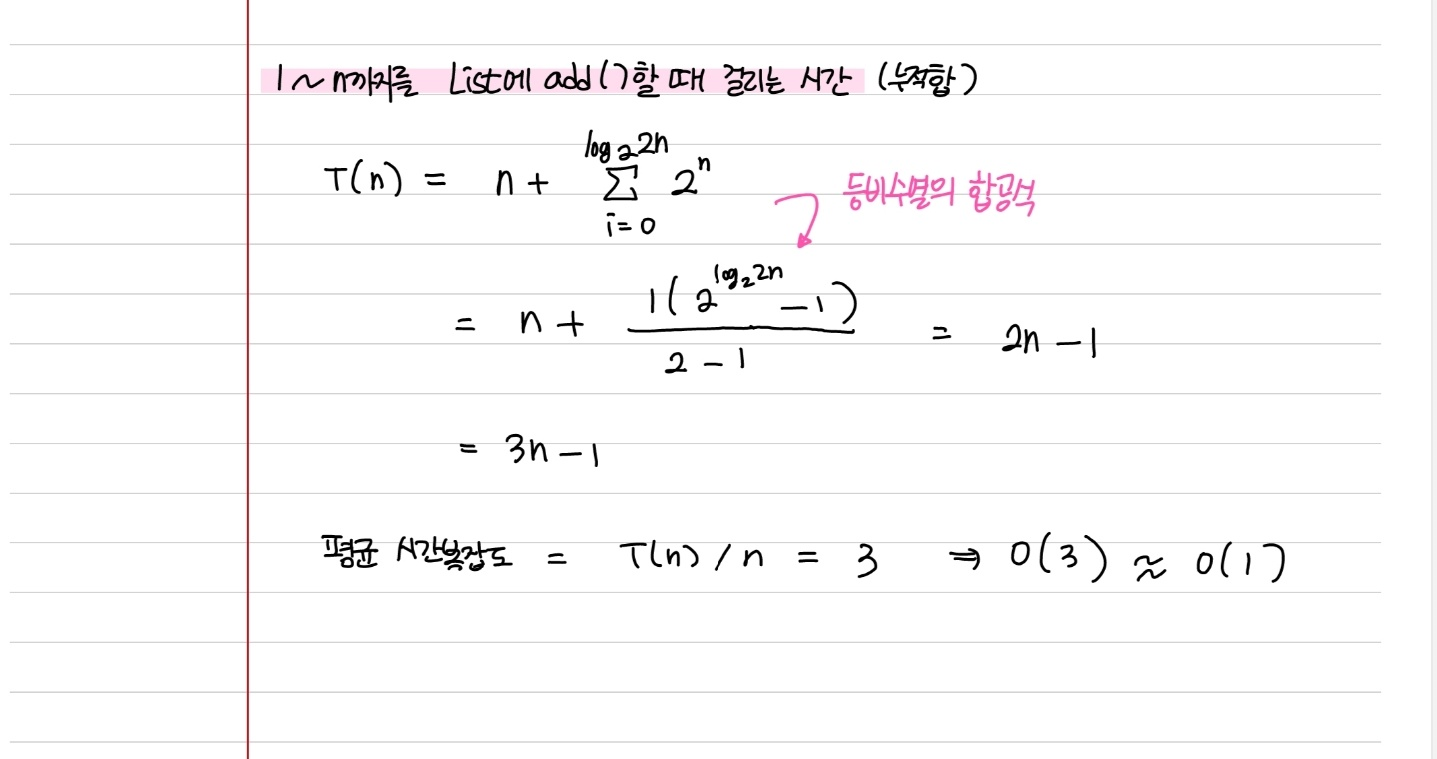 1 ~ n까지를 List에 add()할 때 걸리는 시간 (누적합)
log₂2n
T(n) = n + ∑ 2ⁿ
i=0
등비수열의 합공식
= n + 1(2^log₂2n - 1) / 2 - 1 = 2n - 1
= 3n - 1
평균 시간복잡도 = T(n) / n = 3 ⇒ O(3) ≈ O(1)